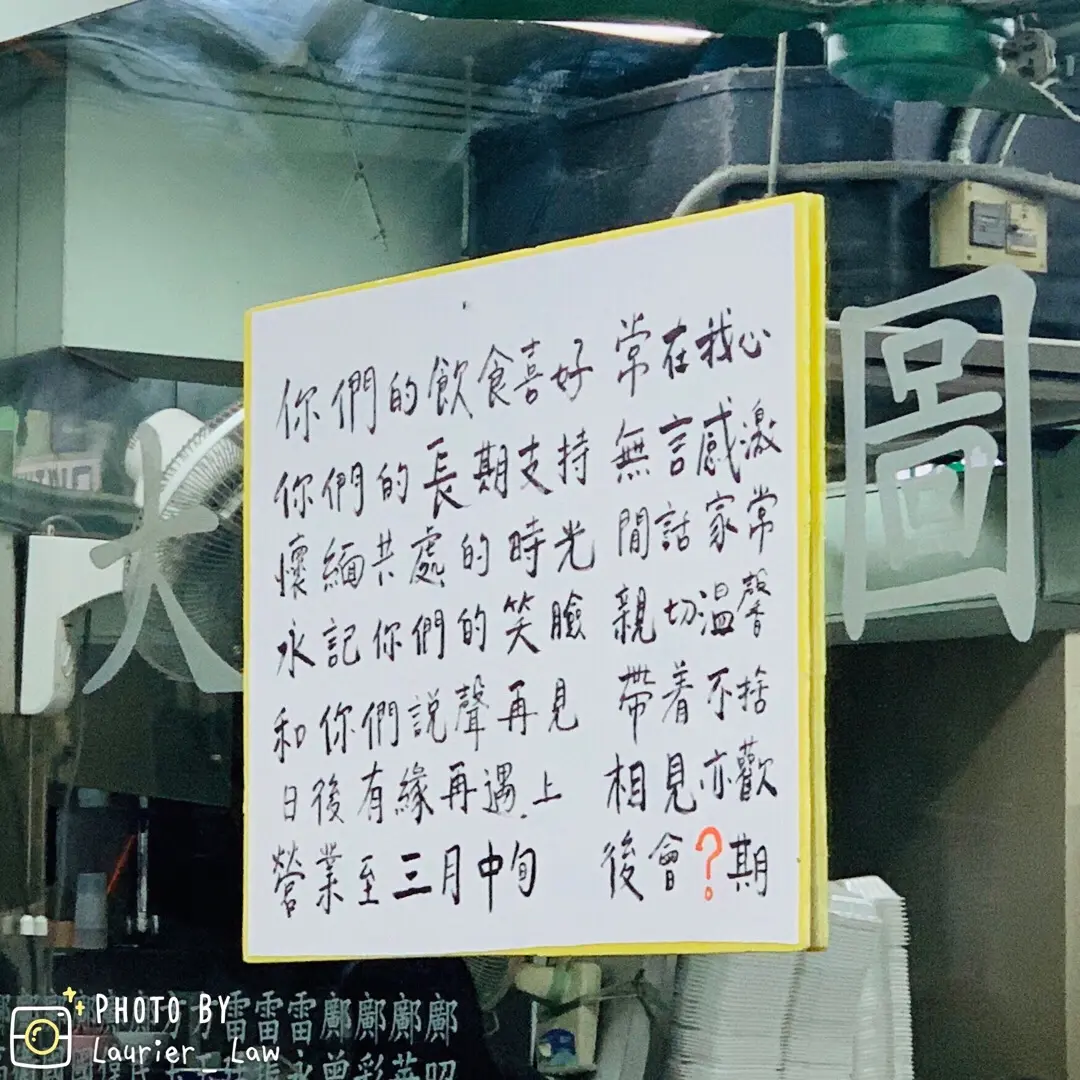 你們的飲食喜好 常在我心
你們的長期支持 無言感激
懷緬共處的時光 閒話家常
永記你們的笑臉 親切温馨
和你們説聲再見 帶着不捨
日後有緣再遇上 相見亦歡
營業至三月中旬 後會?期
大
圖
雷雷雷鄺鄺鄺鄺
PHOTO BY
Laurier_Law